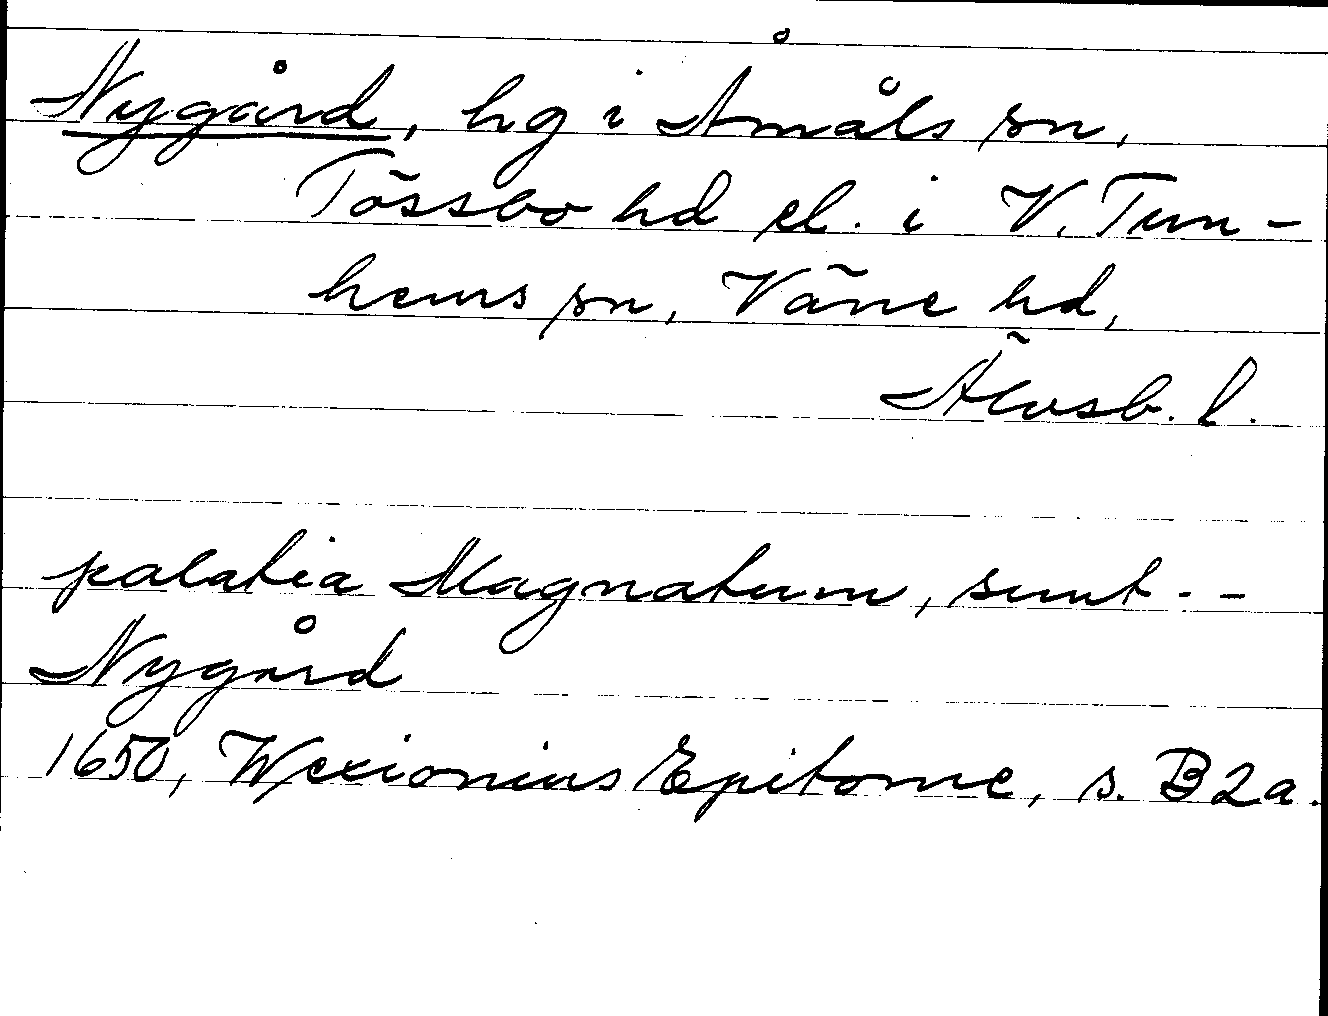 Nygård, hg i Åmåls sn,
Tössbo hd el. i V. Tun-
hems sn, Väne hd,
Älvsb. l.
palatia Magnatum, sunt - -
Nygård
1650, Wexionius Epitome, s. B2a.